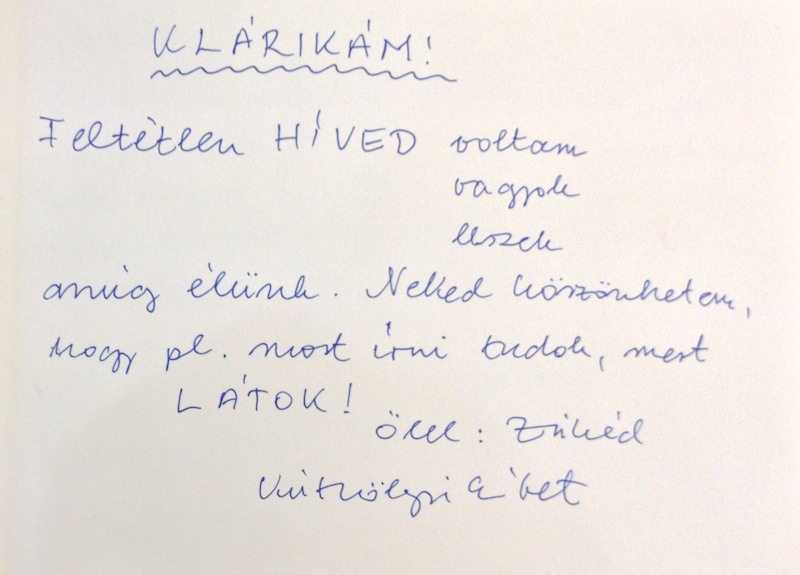 KLÁRIKÁM!
Feltétlen HÍVED voltam
vagyok
leszek
amíg élünk. Neked köszönhetem,
hogy pl. most írni tudok, mert
LÁTOK!
Ölel: